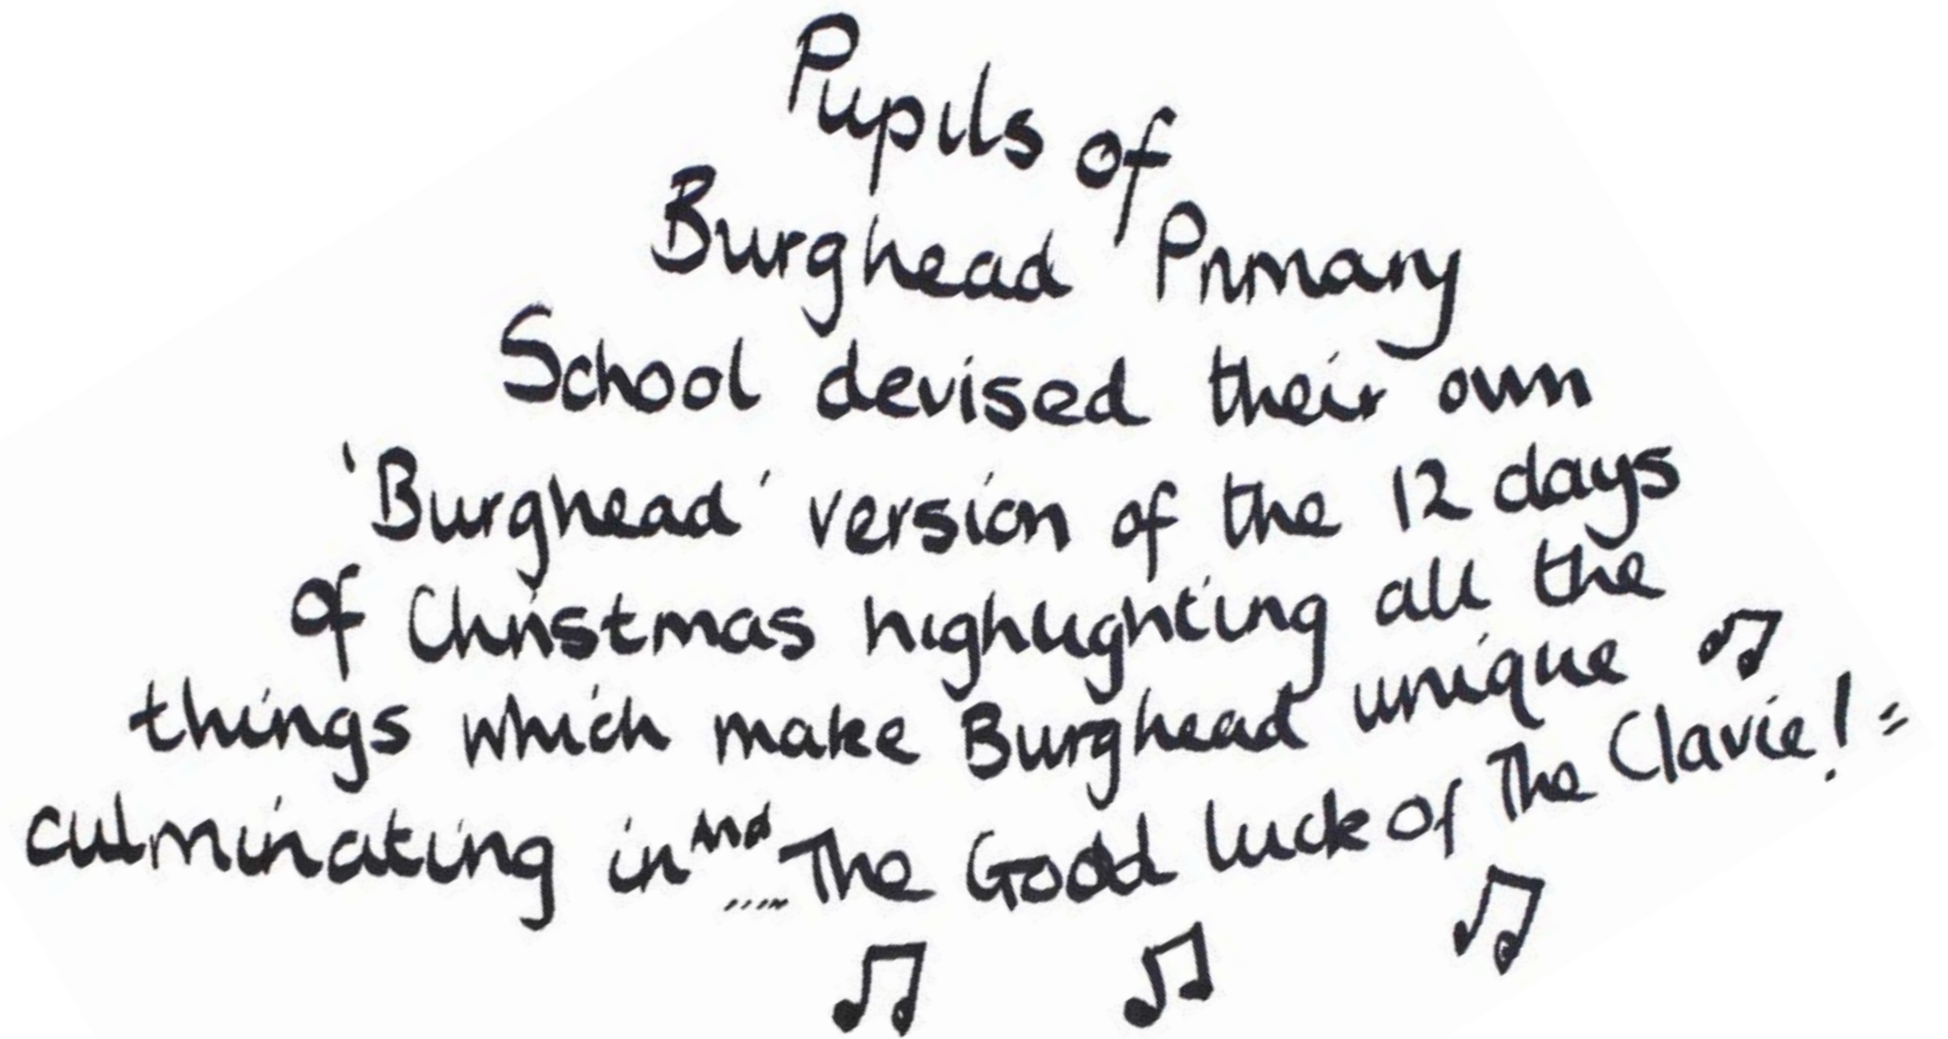 Pupils of
Burghead Primary
School devised their own
'Burghead' version of the 12 days
of Christmas highlighting all the
things which make Burghead unique
culminating in And ..... The Good luck of The Clavie! =